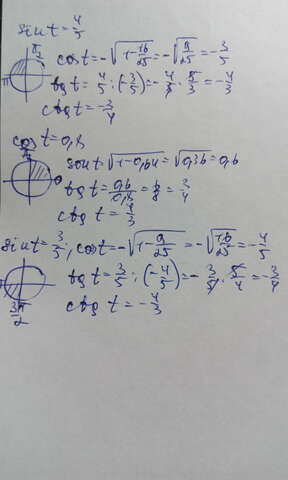 sin t = 4/5
π/2
cos t = -√(1-16/25) = -√(9/25) = -3/5
tg t = 4/5 : (-3/5) = -4/5 · 5/3 = -4/3
ctg t = -3/4
cos t = 0,8
sin t = √(1-0,64) = √0,36 = 0,6
tg t = 0,6/0,8 = 6/8 = 3/4
ctg t = 4/3
sin t = 3/5, cos t = -√(1-9/25) = -√(16/25) = -4/5
tg t = 3/5 : (-4/5) = -3/5 · 5/4 = -3/4
3π/2
ctg t = -4/3